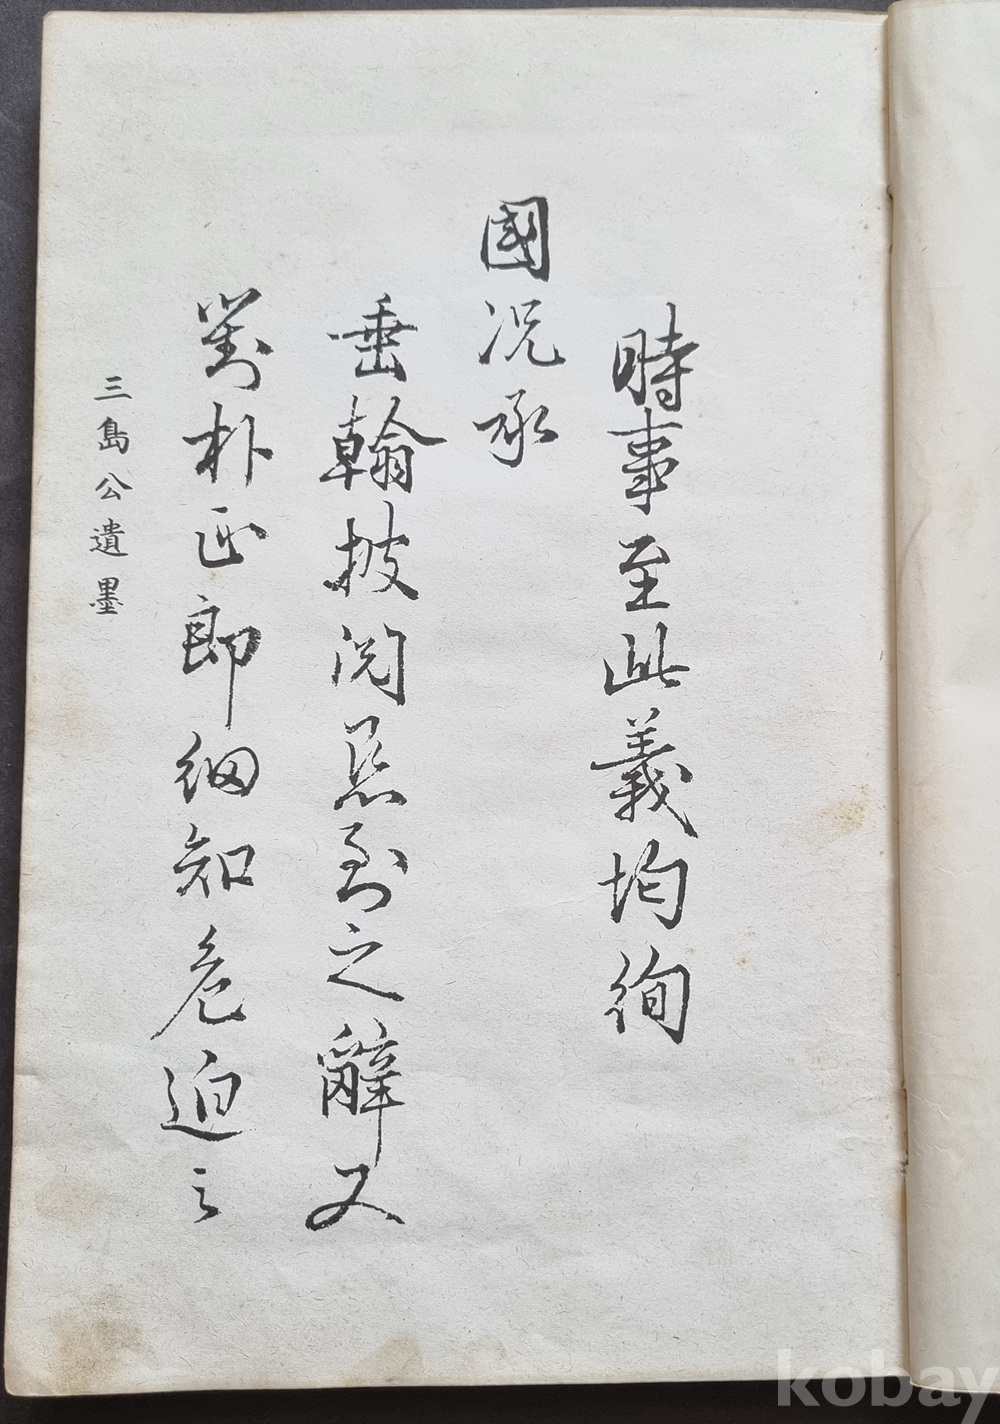 時事至此義均徇
國况承
垂翰披閱恳到之辭又
對朴正郎細知危迫之
三島公遺墨
kobay